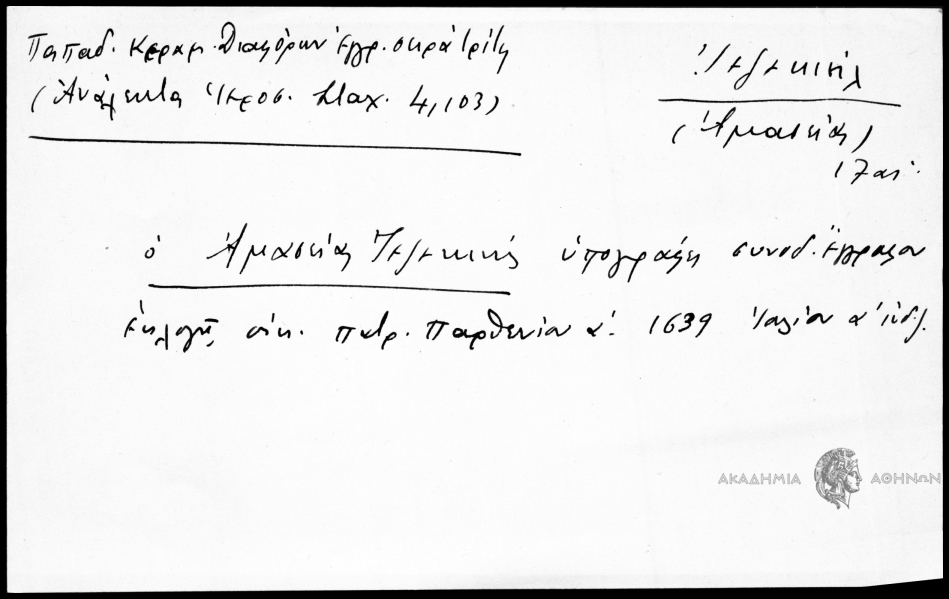 Παπαδ. Κεραμ. Διαφόρων ἐγγρ. σειρὰ τρίτη
(Ἀνάλεκτα Ἱεροσ. Σταχ. 4, 103)
Ἰεζεκιήλ
(Ἀμασείας)
17 αἰ.
ὁ Ἀμασείας Ἰεζεκιὴλ ὑπογράφει συνοδ. ἔγγραφον
ἐκλογῆς οἰκ. πατρ. Παρθενίου α΄. 1639 Ἰουλίου α΄ ἰνδ. ζ
ΑΚΑΔΗΜΙΑ ΑΘΗΝΩΝ